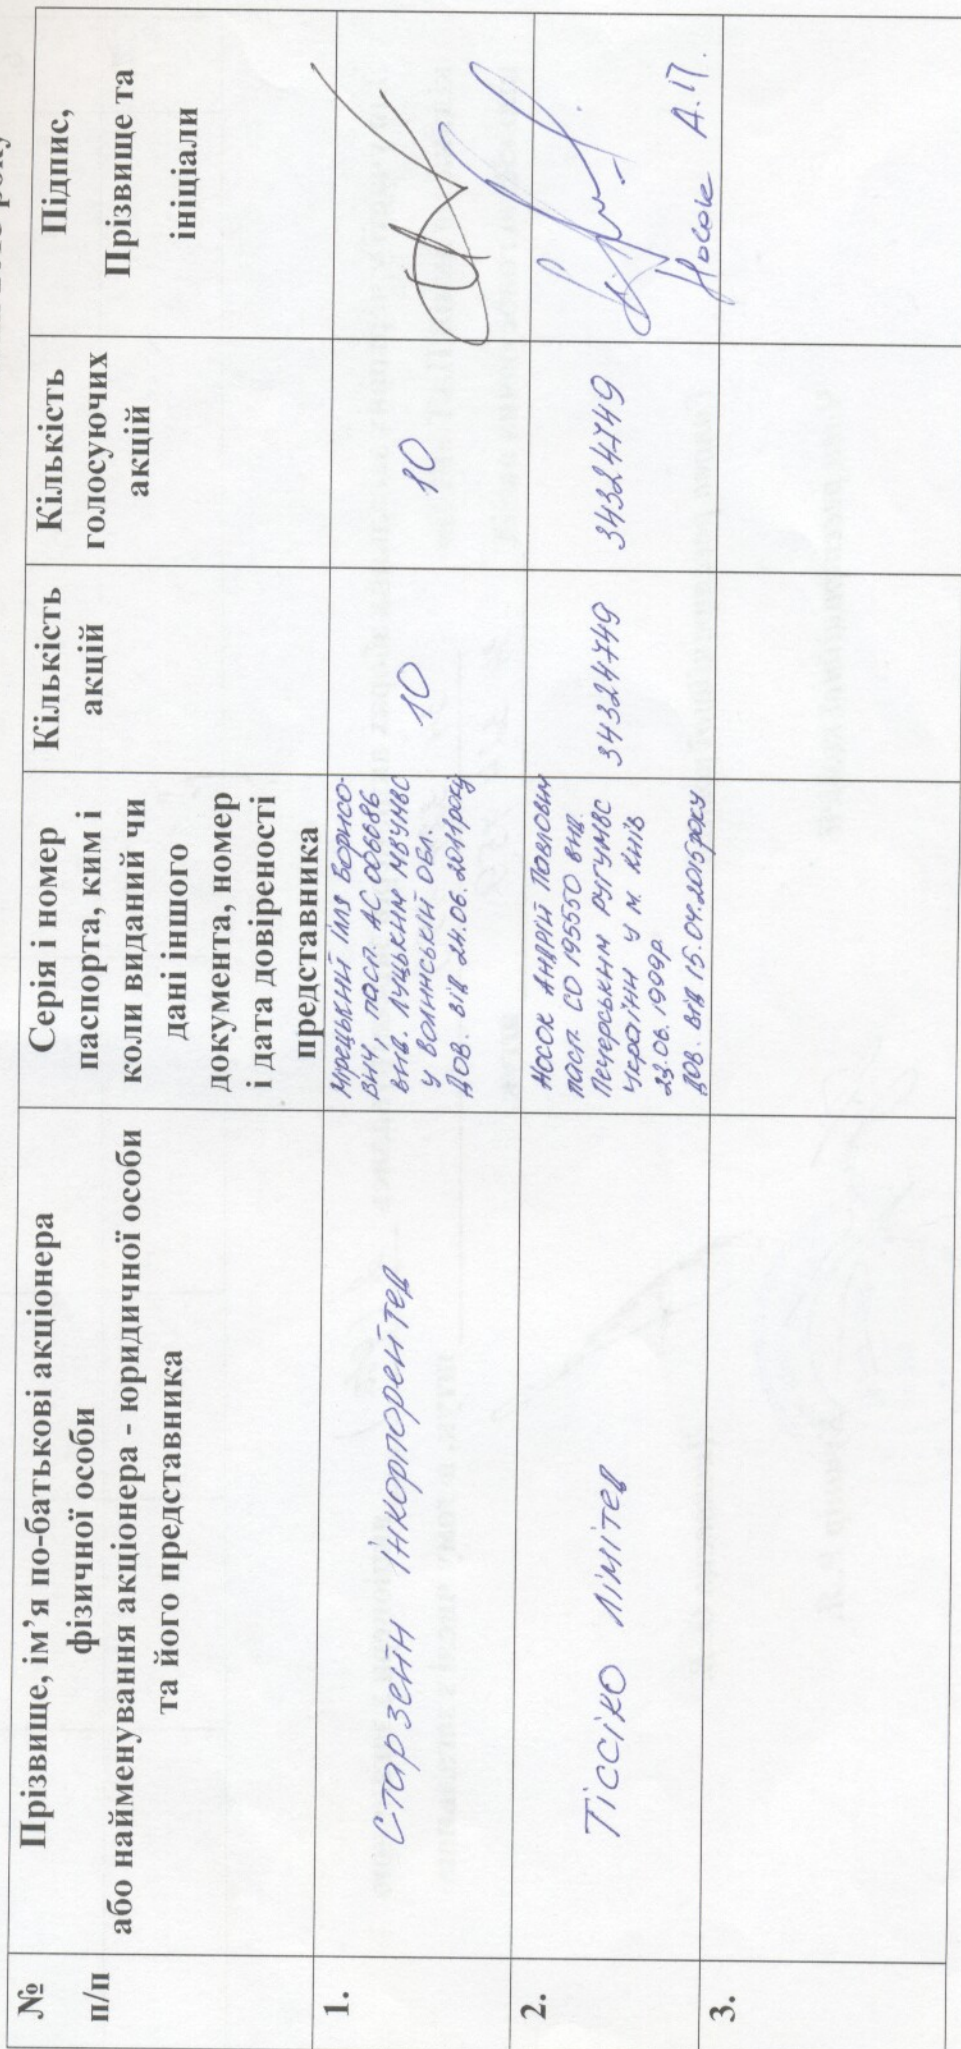 року
№
п/п
Прізвище, ім’я по-батькові акціонера
фізичної особи
або найменування акціонера - юридичної особи
та його представника
Серія і номер
паспорта, ким і
коли виданий чи
дані іншого
документа, номер
і дата довіреності
представника
Кількість
акцій
Кількість
голосуючих
акцій
Підпис,
Прізвище та
ініціали
1.
Старзейн Інкорпорейтед
Мірецький Ілля Борисо-
вич, пасп. АС 006686
вид. Луцьким МВУМВС
у Волинській обл.
Дов. від 24.06.2011 року
10
10
2.
Тіссіко Лімітед
Носок Андрій Павлович
пасп. СО 195550 вид.
Печерським РУГУМВС
України у м. Київ
23.06.1999р.
Дов. від 15.04.2015 року
34324749
34324749
Носок А.П.
3.